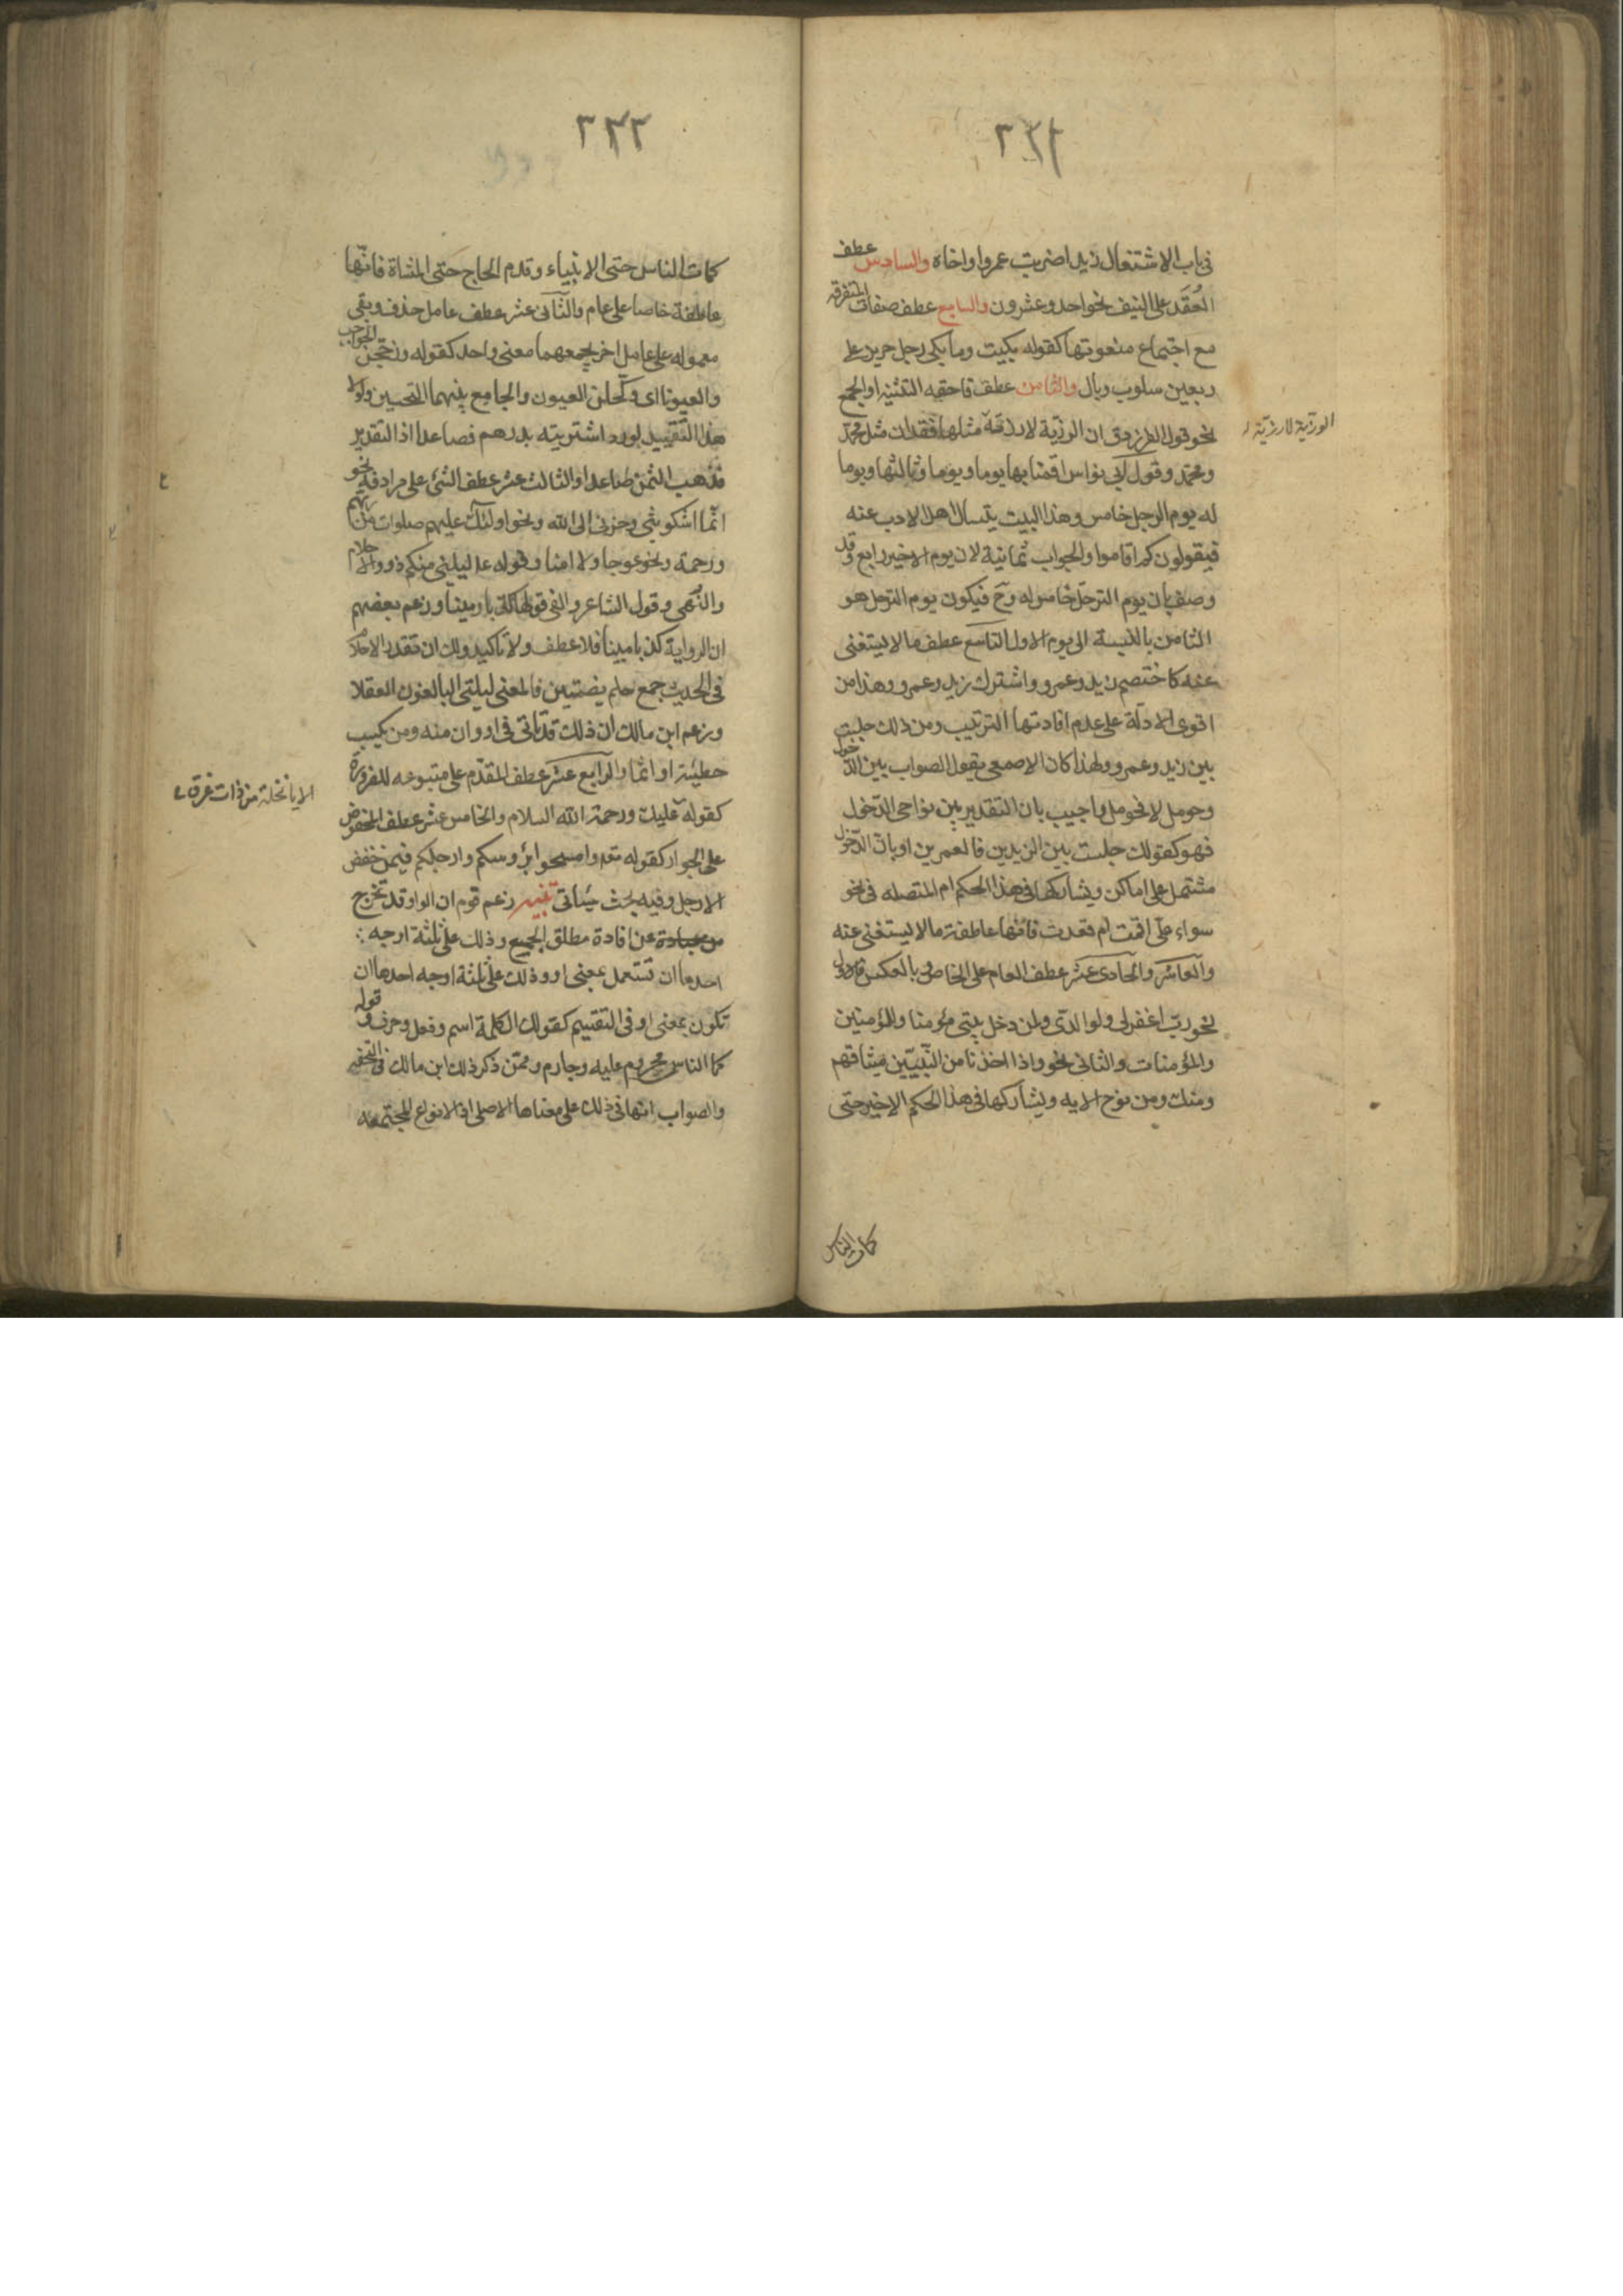 ٣٢١
في باب الاشتغال زيدا ضربت عمروا واخاه والسادس عطف
العُقَد على النيف نحو احد وعشرون والسابع عطف صفات المتفرقه
مع اجتماع منعوتها كقوله بكيت وما بكى رجل حزين على
ربعين سلوب وبال والثامن عطف ما حقه التثنيه او الجمع
نحو قول الفرزدق ان الرزية لا رزقة مثلها فقدان مثل محمّد
ومحمّد وقول ابي نواس اقمنا بها يوما ويوما وثالثها ويوما
له يوم الرحل خامس وهذا البيت يتسال اهل الادب عنه
فيقولون كم اقاموا والجواب ثمانية لان يوم الاخير رابع وقد
وصف بان يوم الترحّل خامس له وح فيكون يوم الترحل هو
الثامن بالنسبة الى يوم الاول التاسع عطف ما لا يستغنى
عنه كاختصم زيد وعمرو واشترك زيد وعمرو وهذا من
اقوى الادلّة على عدم افادتها الترتيب ومن ذلك جلست
بين زيد وعمرو ولهذا كان الاصمعي يقول الصواب بين الدّخول
وحومل لا فحومل واجيب بان التقدير بين نواحي الدّخول
فهو كقولك جلست بين الزيدين فالعمرين او بان الدّخول
مشتمل على اماكن ويشاركها في هذا الحكم ام المتصله في نحو
سواء علّى اقمت ام قعدت فانّها عاطفة ما لا يستغنى عنه
والعاشر والحادى عشر عطف العام على الخاص وبالعكس فالاول
نحو ربّ اغفر لى ولوالدّى ولمن دخل بيتى مؤمنا وللمؤمنين
والمؤمنات والثانى نحو واذا اخذنا من النّبيّين ميثاقهم
ومنك ومن نوح الايه ويشاركها في هذا الحكم الاخير حتى
كمات الناس
الورزية لا رزية
٣٢٢
كمات الناس حتى الانبياء وقدم الحاج حتى المشاة فانّها
عاطفة خاصا على عام والثّانى عشر عطف عامل حذف وبقى
معموله على عامل اخر يجمعهما معنى واحد كقوله وزججن الحواجب
والعيونا اى وكحلن العيون والجامع بينهما التحسين ولولا
هذا التّقييد لورد اشتريته بدرهم فصاعدا اذ التقدير
فذهب الثمن صاعدا والثالث عشر عطف الشئ على مرادفه نحو
انّما اشكو بثّى وحزنى الى الله ونحو اولئك عليهم صلوات من ربّهم
ورحمة ونحو عوجا ولا امتا وقوله ع ليلنى منكم ذووا الاحلام
والنُّهى وقول الشاعر والفى قولها كذبا ومينا وزعم بعضهم
ان الرواية كذبا مبينا فلا عطف ولا تاكيد ولك ان تقدر الاحلام
فى الحديث جمع حلم بضمتين فالمعنى ليلتى البالغون العقلا
وزعم ابن مالك ان ذلك قد ياتى فى او وان منه ومن يكسب
خطيئة او اثما والرابع عشر عطف المقدّم على متبوعه للضرورة
كقوله عليك ورحمة الله السلام والخامس عشر عطف المخفوض
على الجوار كقوله تعه وامسحوا برؤسكم وارجلكم فيمن خفض
الارجل وفيه بحث سيأتى تنبيه زعم قوم ان الواو قد تخرج
عن افادة مطلق الجمع وذلك على ثلثة اوجه
احدها ان تستعمل بمعنى او وذلك على ثلثة اوجه احدها ان
تكون بمعنى او فى التقسيم كقولك الكلمة اسم وفعل وحرف وقوله
كما الناس مجروم عليه وجارم وممّن ذكر ذلك ابن مالك فى التحفه
والصواب انها فى ذلك على معناها الاصلى اذ الانواع المجتمعه
الا يا نخلة من ذات عرق